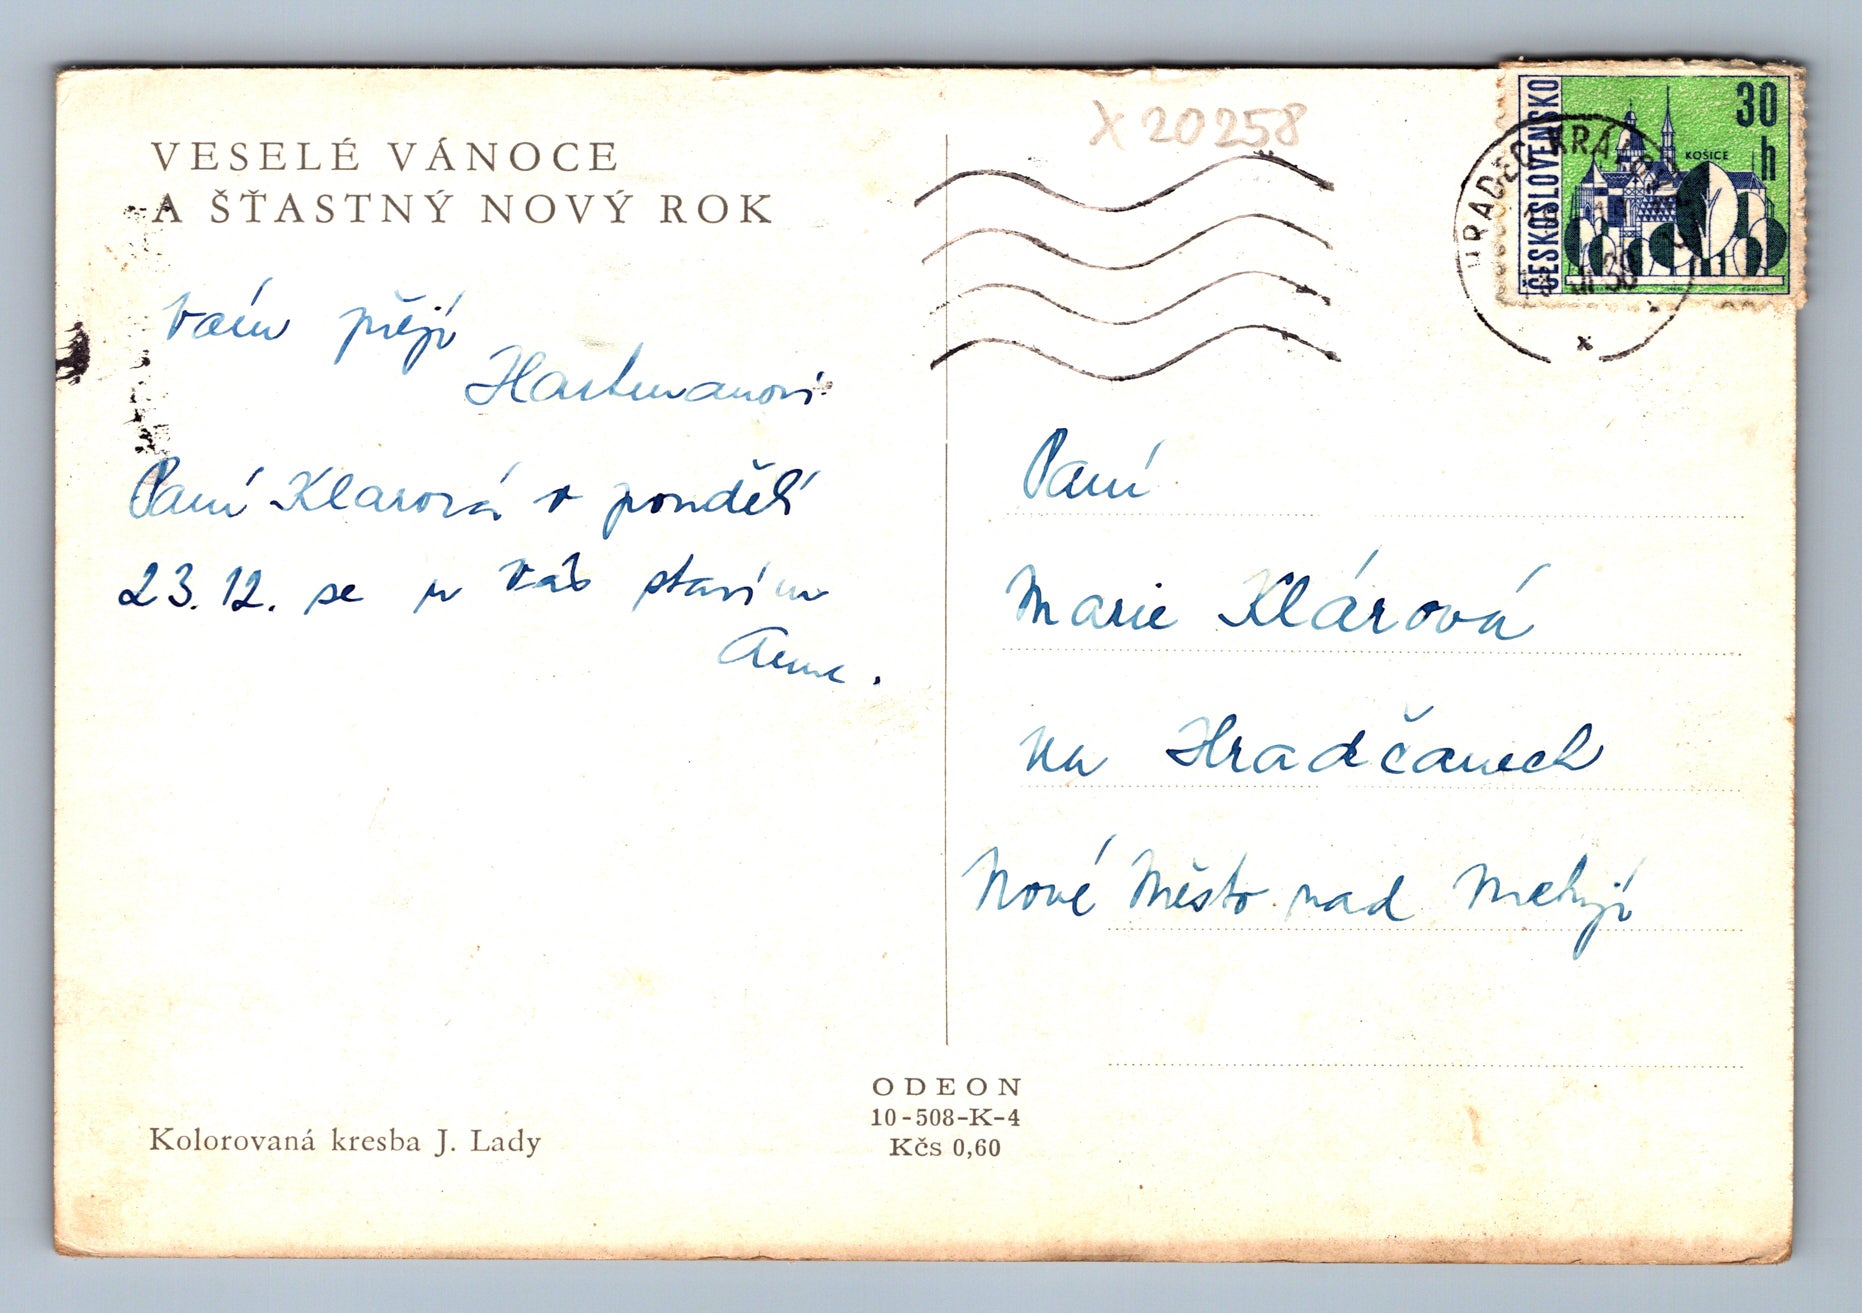 VESELÉ VÁNOCE
A ŠŤASTNÝ NOVÝ ROK
Vám přejí
Hartmanovi
Paní Klarová v pondělí
23.12. se u Vás stavím
Kolorovaná kresba J. Lady
ODEON
10-508-K-4
Kčs 0,60
X 20258
ČESKOSLOVENSKO
30
h
KOŠICE
HRADEC KRÁLOVÉ
Paní
Marie Klárová
na Hradčanech
Nové Město nad Metují